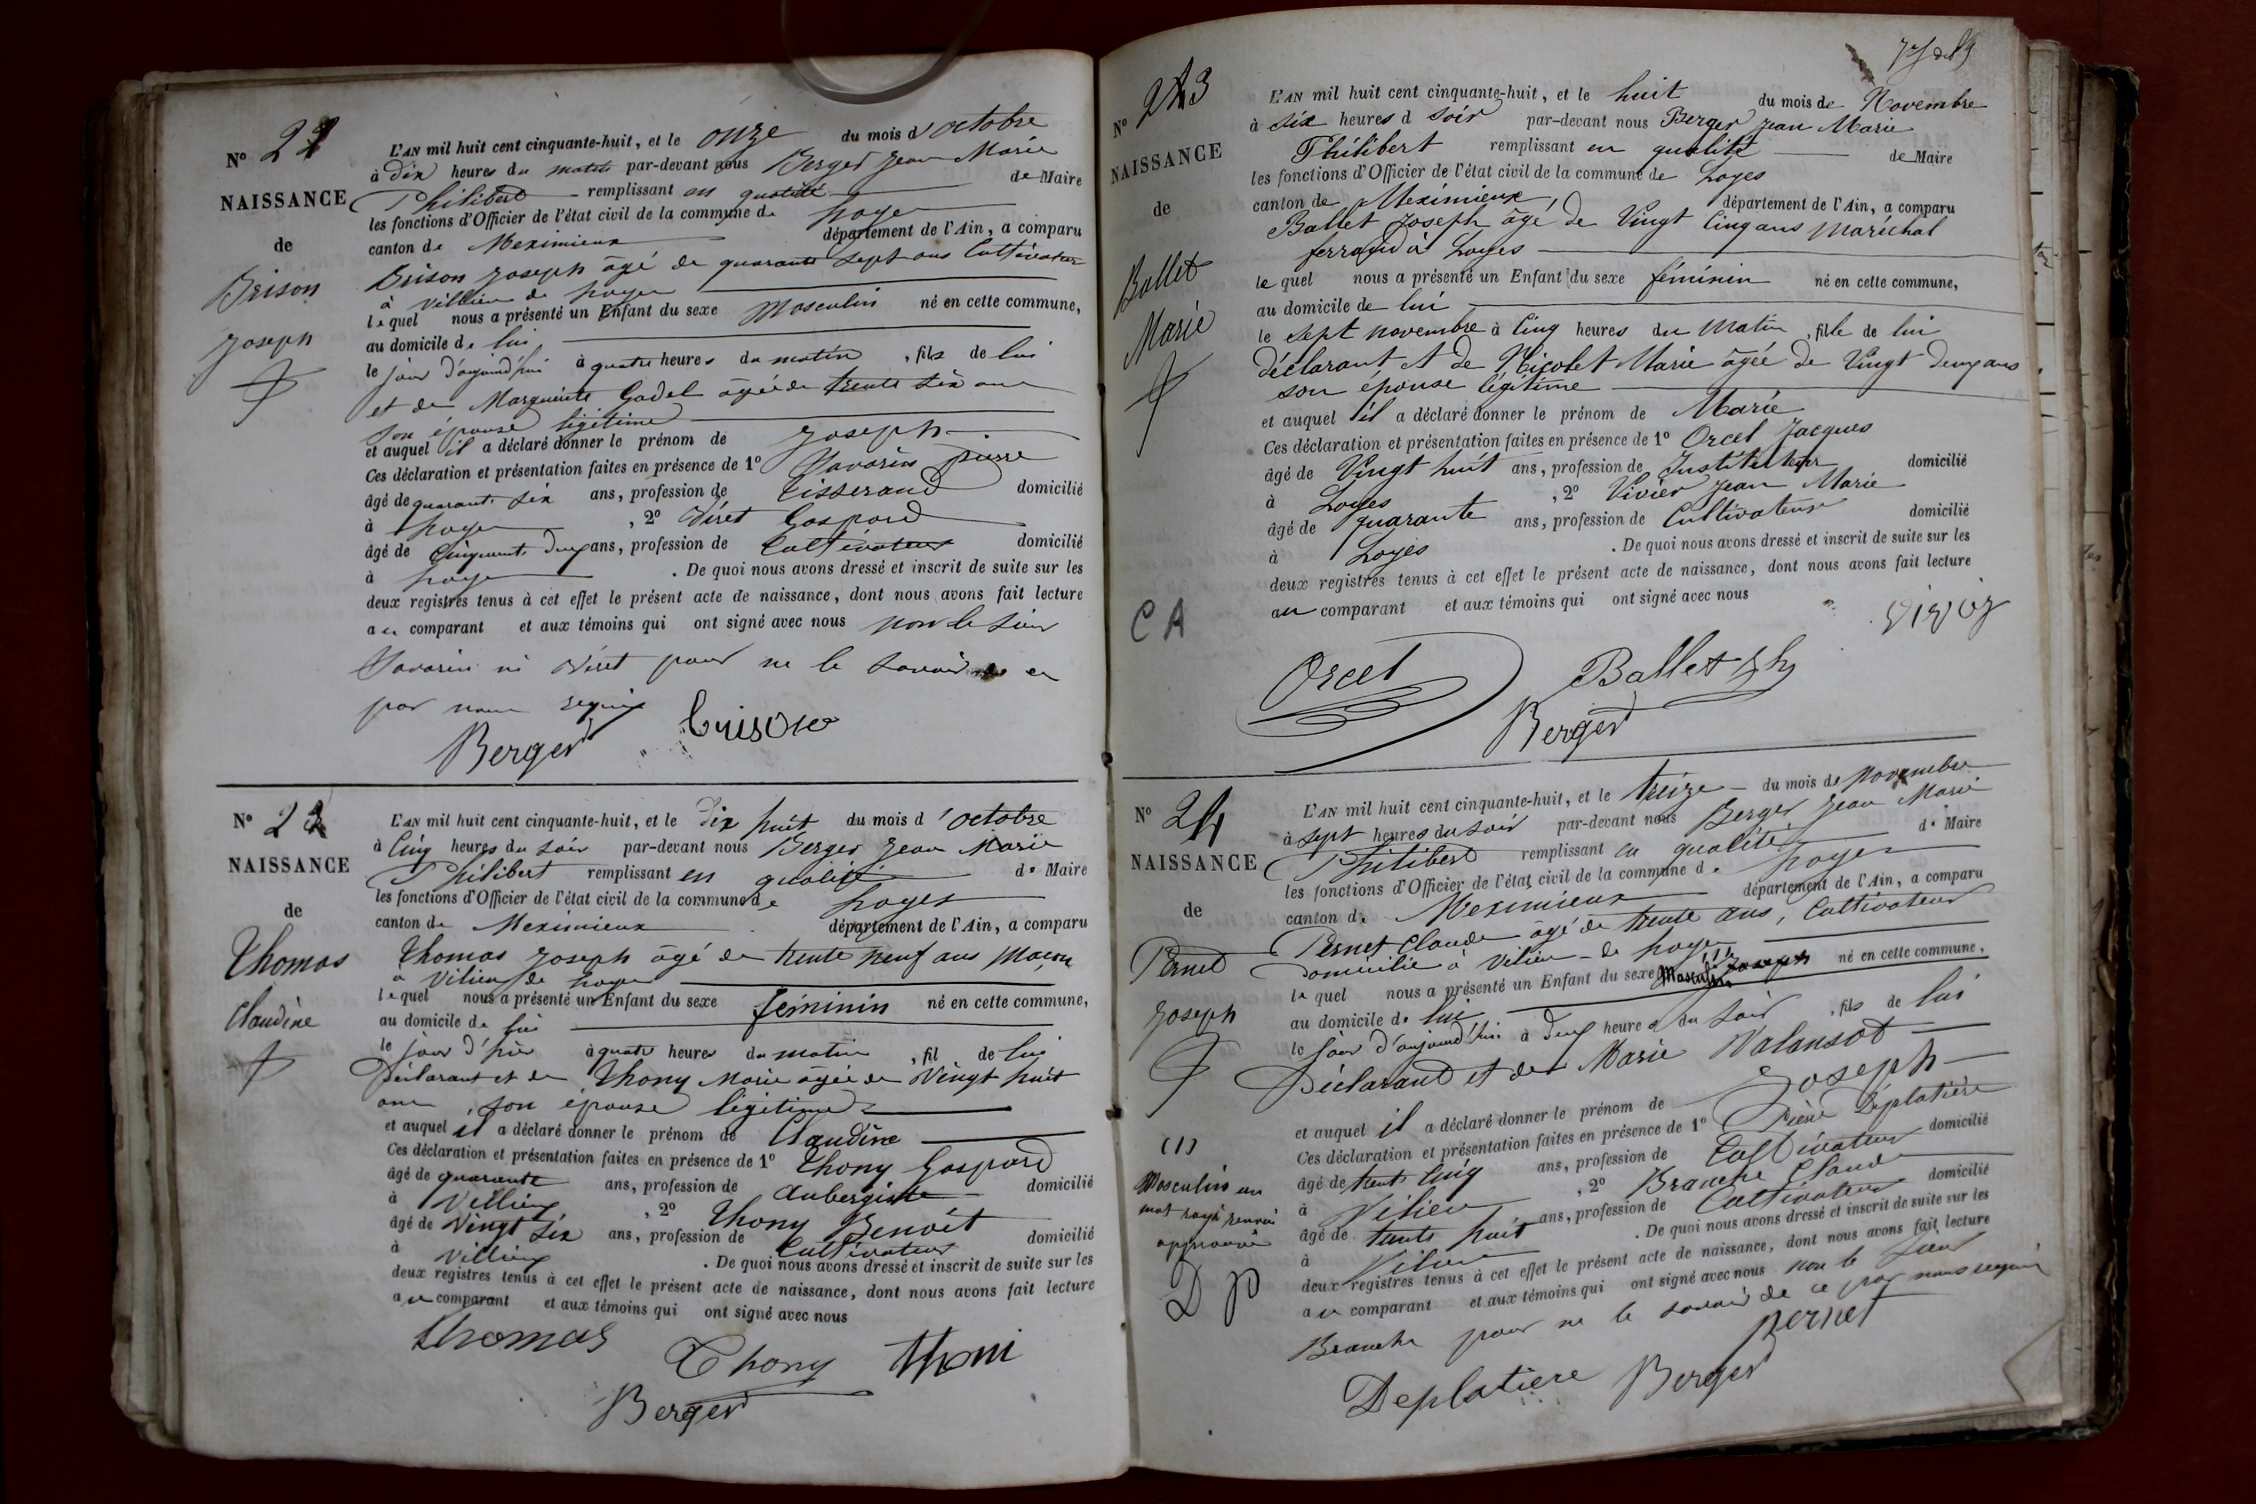 N° 21
NAISSANCE
de
Brison
Joseph
L'AN mil huit cent cinquante-huit, et le onze du mois d'octobre
à dix heures du matin par-devant nous Berger Jean Marie
Philibert remplissant en qualité de Maire
les fonctions d'Officier de l'état civil de la commune de Loyes
canton de Meximieux département de l'Ain, a comparu
Brison Joseph âgé de quarante sept ans Cultivateur
à Villieu de Loyes
lequel nous a présenté un Enfant du sexe Masculin né en cette commune,
au domicile de lui
le jour d'aujourd'hui à quatre heures du matin, fils de lui
et de Marguerite Gadel âgée de trente six ans
son épouse légitime
et auquel il a déclaré donner le prénom de Joseph
Ces déclaration et présentation faites en présence de 1° Savarin Pierre
âgé de quarante six ans, profession de tisserand domicilié
à Loyes, 2° Viret Gaspard
âgé de Cinquante deux ans, profession de Cultivateur domicilié
à Loyes. De quoi nous avons dressé et inscrit de suite sur les
deux registres tenus à cet effet le présent acte de naissance, dont nous avons fait lecture
au comparant et aux témoins qui ont signé avec nous non le sieur
Savarin ni Viret pour ne le savoir de ce
par nous requis
Berger Brison
N° 22
NAISSANCE
de
Thomas
Claudine
L'AN mil huit cent cinquante-huit, et le dix huit du mois d'octobre
à Cinq heures du soir par-devant nous Berger Jean Marie
Philibert remplissant en qualité de Maire
les fonctions d'Officier de l'état civil de la commune de Loyes
canton de Meximieux département de l'Ain, a comparu
Thomas Joseph âgé de trente neuf ans Maçon
à Vilieu de Loyes
lequel nous a présenté un Enfant du sexe féminin né en cette commune,
au domicile de lui
le jour d'hier à quatre heures du matin, fil de lui
Déclarant et de Thony Marie âgée de Vingt huit
ans, son épouse légitime
et auquel il a déclaré donner le prénom de Claudine
Ces déclaration et présentation faites en présence de 1° Thony Gaspard
âgé de quarante ans, profession de Aubergiste domicilié
à Villieu, 2° Thony Benoit
âgé de Vingt six ans, profession de Cultivateur domicilié
à Villieu. De quoi nous avons dressé et inscrit de suite sur les
deux registres tenus à cet effet le présent acte de naissance, dont nous avons fait lecture
au comparant et aux témoins qui ont signé avec nous
Thomas Thony Thoni
Berger
N° 23
NAISSANCE
de
Ballet
Marie
CA
L'AN mil huit cent cinquante-huit, et le huit du mois de Novembre
à six heures d soir par-devant nous Berger Jean Marie
Philibert remplissant en qualité de Maire
les fonctions d'Officier de l'état civil de la commune de Loyes
canton de Meximieux, département de l'Ain, a comparu
Ballet Joseph âgé de Vingt Cinq ans Maréchal
ferrand à Loyes
lequel nous a présenté un Enfant du sexe féminin né en cette commune,
au domicile de lui
le sept novembre à Cinq heures du Matin, fille de lui
déclarant et de Nicolet Marie âgée de Vingt deux ans
son épouse légitime
et auquel il a déclaré donner le prénom de Marie
Ces déclaration et présentation faites en présence de 1° Orcel Jacques
âgé de Vingt huit ans, profession de Instituteur domicilié
à Loyes, 2° Vivier Jean Marie
âgé de quarante ans, profession de Cultivateur domicilié
à Loyes. De quoi nous avons dressé et inscrit de suite sur les
deux registres tenus à cet effet le présent acte de naissance, dont nous avons fait lecture
au comparant et aux témoins qui ont signé avec nous
Orcel Ballet Jph
Berger
N° 24
NAISSANCE
de
Pernet
Joseph
(1)
Masculin un
mot rayé renvoi
approuvé
D P
L'AN mil huit cent cinquante-huit, et le treize du mois de Novembre
à sept heures du soir par-devant nous Berger Jean Marie
Philibert remplissant en qualité de Maire
les fonctions d'Officier de l'état civil de la commune de Loyes
canton de Meximieux département de l'Ain, a comparu
Pernet Claude âgé de trente ans, Cultivateur
domicilié à Vilieu de Loyes
lequel nous a présenté un Enfant du sexe Masculin (1) Joseph né en cette commune,
au domicile de lui
le jour d'aujourd'hui à deux heures du soir, fils de lui
Déclarant et de Marie Valansot
et auquel il a déclaré donner le prénom de Joseph
Ces déclaration et présentation faites en présence de 1° Pierre Déplatière
âgé de trente cinq ans, profession de Cultivateur domicilié
à Vilieu, 2° Branche Claude
âgé de trente huit ans, profession de Cultivateur domicilié
à Vilieu. De quoi nous avons dressé et inscrit de suite sur les
deux registres tenus à cet effet le présent acte de naissance, dont nous avons fait lecture
au comparant et aux témoins qui ont signé avec nous non le sieur
Branche pour ne le savoir de ce par nous requis
Pernet
Deplatiere Berger